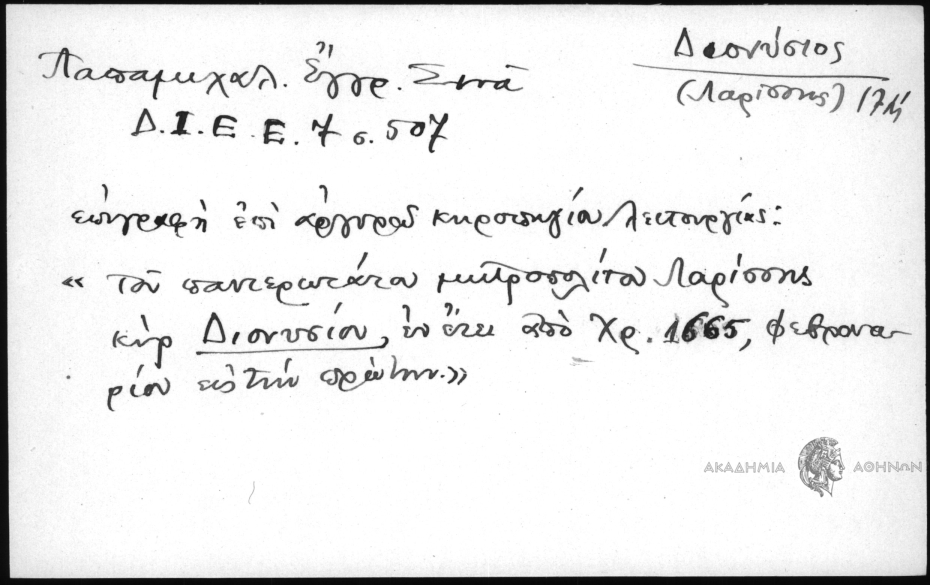 Διονύσιος
(Λαρίσσης) 17
Παπαμιχαλ. Ἔγγρ. Σινᾶ
Δ.Ι.Ε.Ε. 7 σ. 507
ἐπιγραφὴ ἐπὶ ἀργυροῦ κηροπηγίου λειτουργίας:
« τοῦ πανιερωτάτου μητροπολίτου Λαρίσσης
κὺρ Διονυσίου, ἐν ἔτει ἀπὸ Χρ. 1665, Φεβρουα-
ρίου εἰς τὴν πρώτην.»
ΑΚΑΔΗΜΙΑ ΑΘΗΝΩΝ